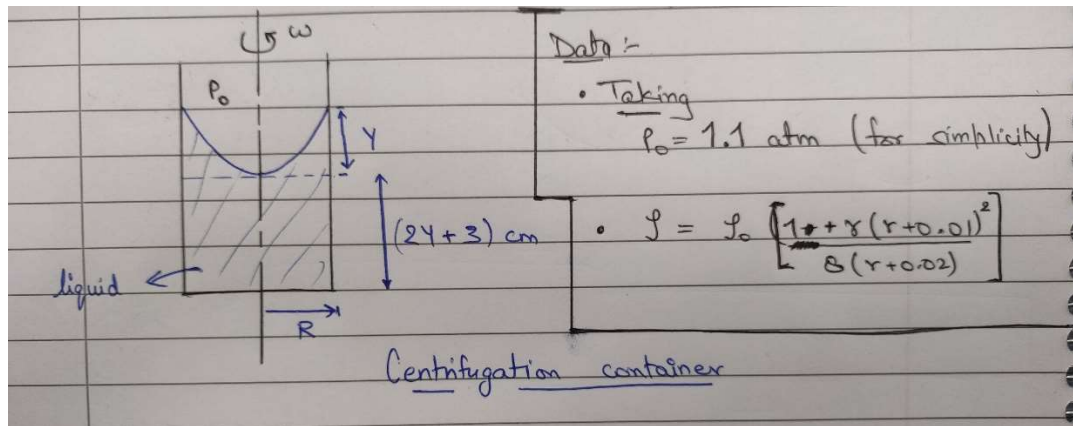 ω
P₀
Y
(2Y+3) cm
liquid
R
Centrifugation container
Data :-
• Taking
P₀ = 1.1 atm (for simplicity)
• ρ = ρ₀ [1 + γ(r+0.01)² / 8(r+0.02)]